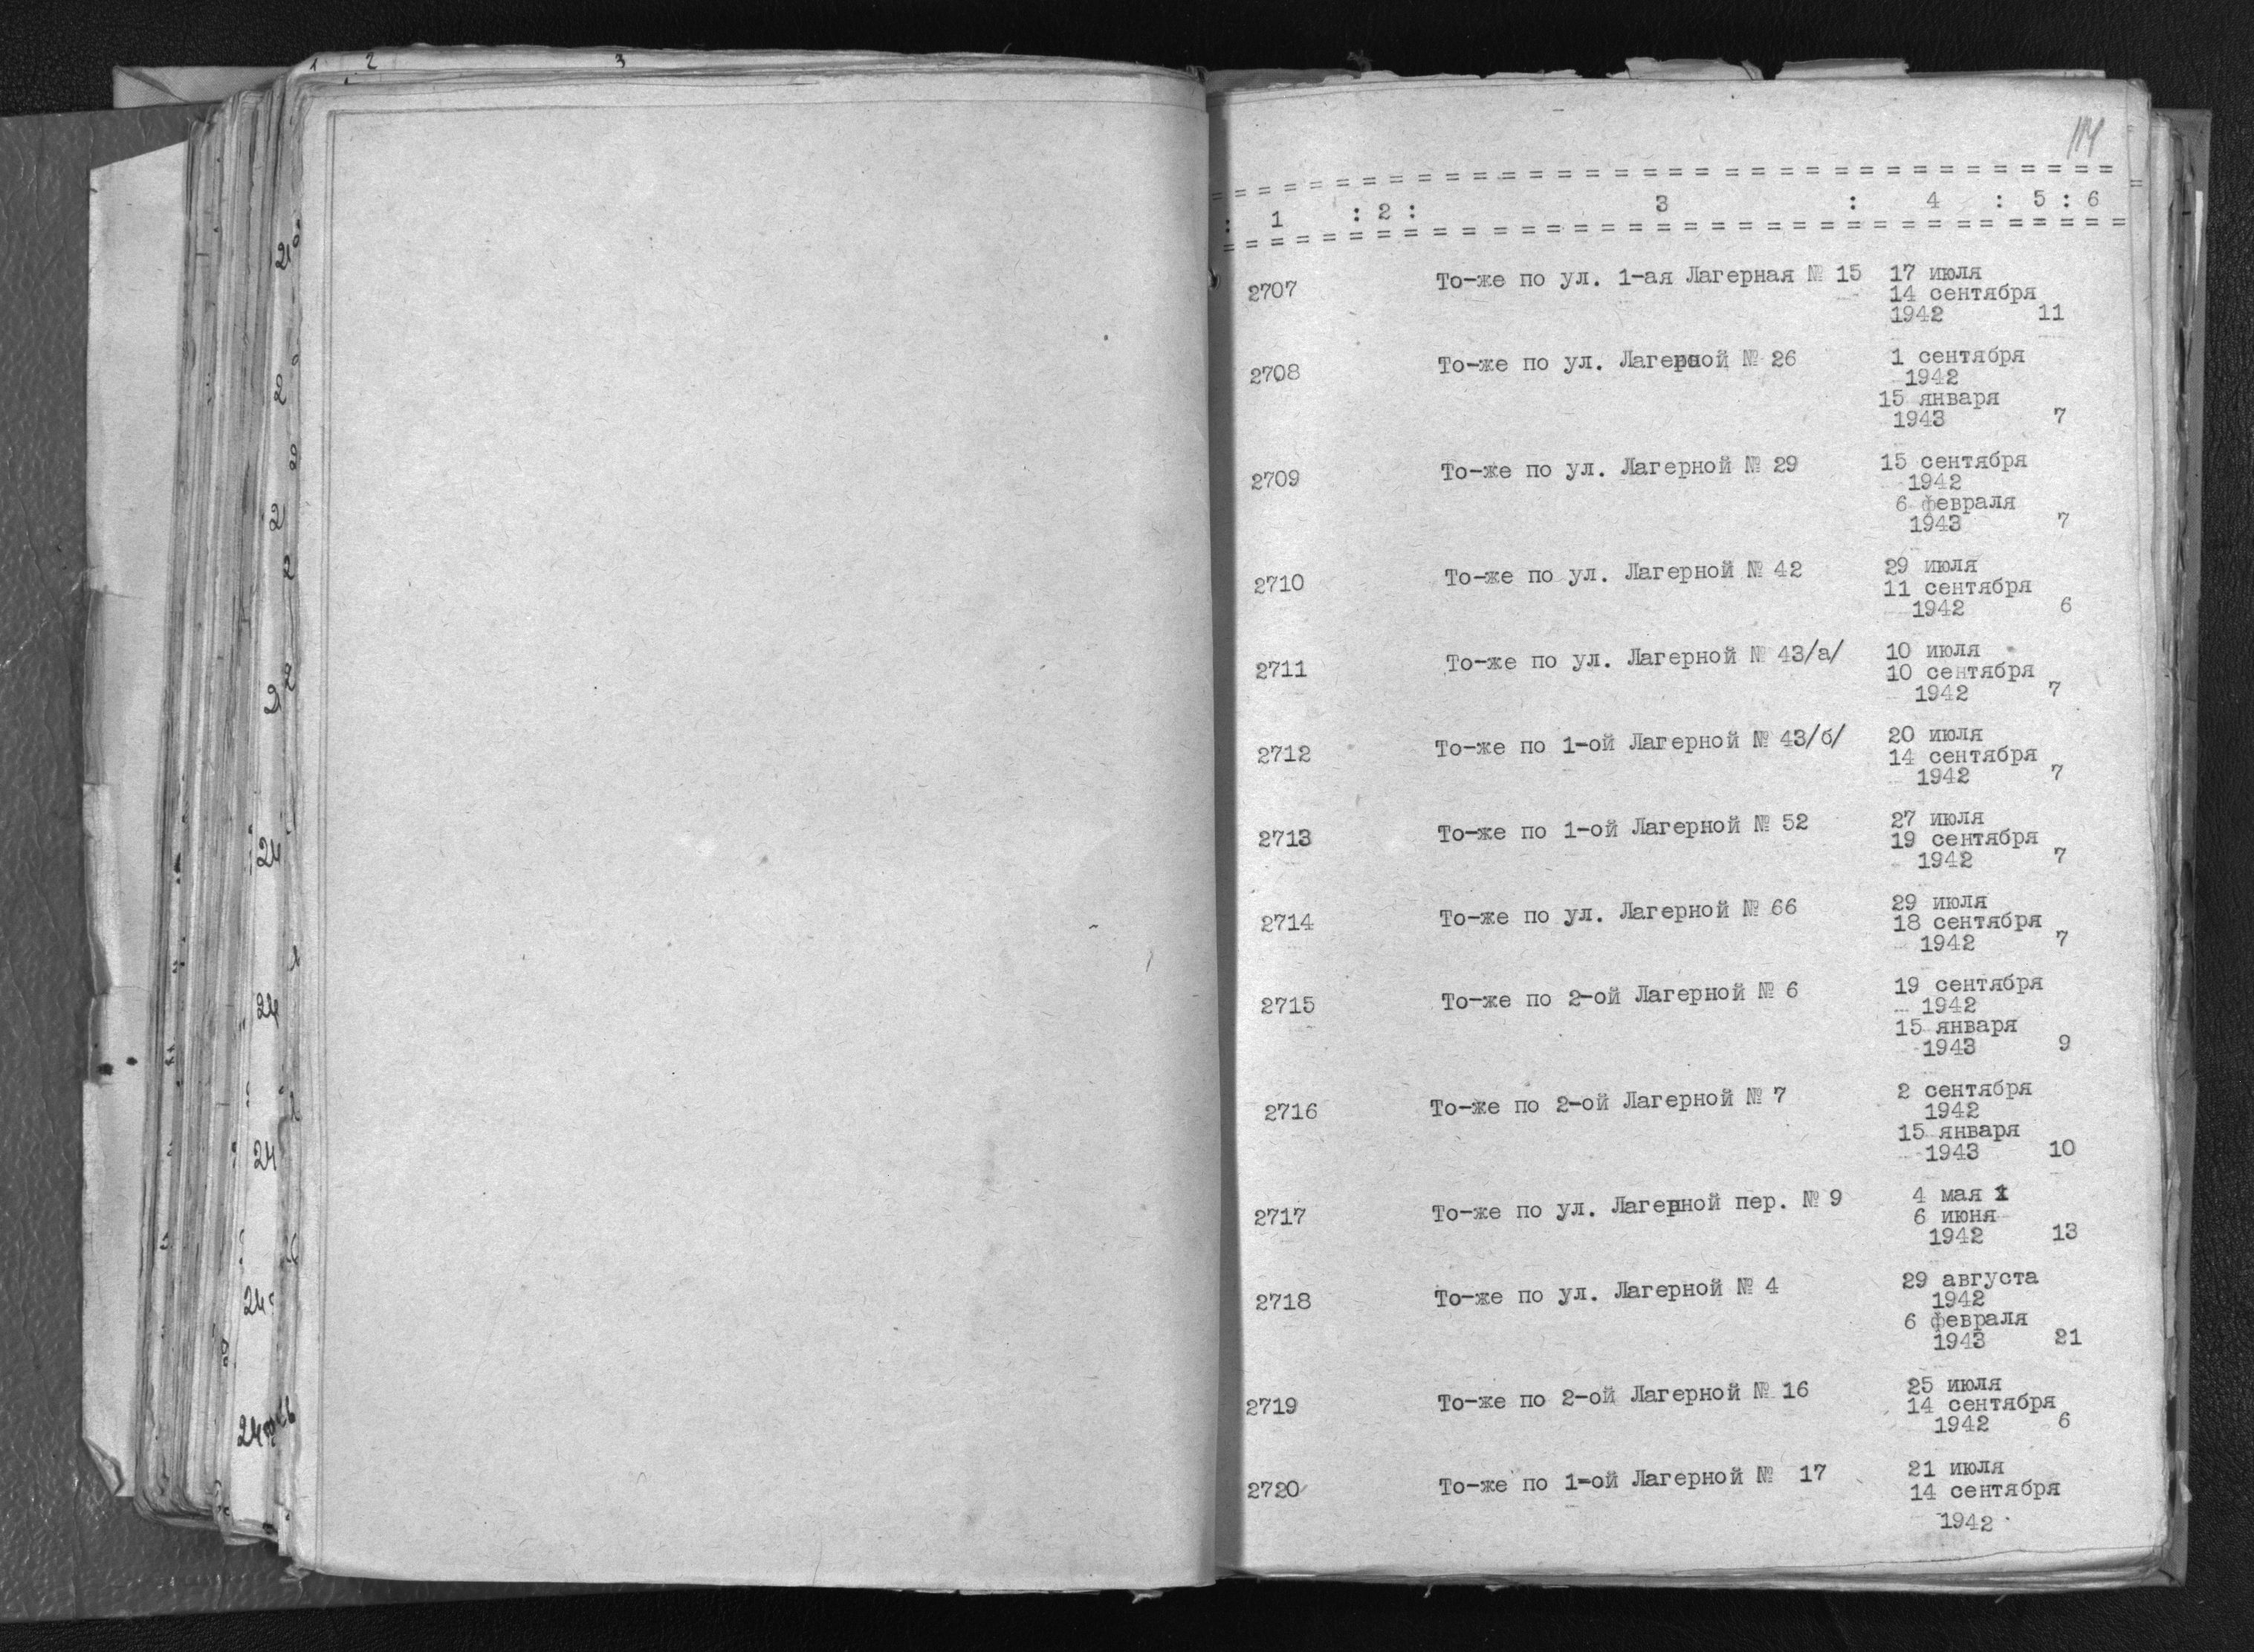 1 2 3
114
: 1 : 2 : 3 : 4 : 5 : 6
2707 То-же по ул. 1-ая Лагерная № 15 17 июля
14 сентября
1942 11
2708 То-же по ул. Лагерной № 26 1 сентября
1942
15 января
1943 7
2709 То-же по ул. Лагерной № 29 15 сентября
1942
6 февраля
1943 7
2710 То-же по ул. Лагерной № 42 29 июля
11 сентября
1942 6
2711 То-же по ул. Лагерной № 43/а/ 10 июля
10 сентября
1942 7
2712 То-же по 1-ой Лагерной № 43/б/ 20 июля
14 сентября
1942 7
2713 То-же по 1-ой Лагерной № 52 27 июля
19 сентября
1942 7
2714 То-же по ул. Лагерной № 66 29 июля
18 сентября
1942 7
2715 То-же по 2-ой Лагерной № 6 19 сентября
1942
15 января
1943 9
2716 То-же по 2-ой Лагерной № 7 2 сентября
1942
15 января
1943 10
2717 То-же по ул. Лагерной пер. № 9 4 мая
6 июня
1942 13
2718 То-же по ул. Лагерной № 4 29 августа
1942
6 февраля
1943 21
2719 То-же по 2-ой Лагерной № 16 25 июля
14 сентября
1942 6
2720 То-же по 1-ой Лагерной № 17 21 июля
14 сентября
1942